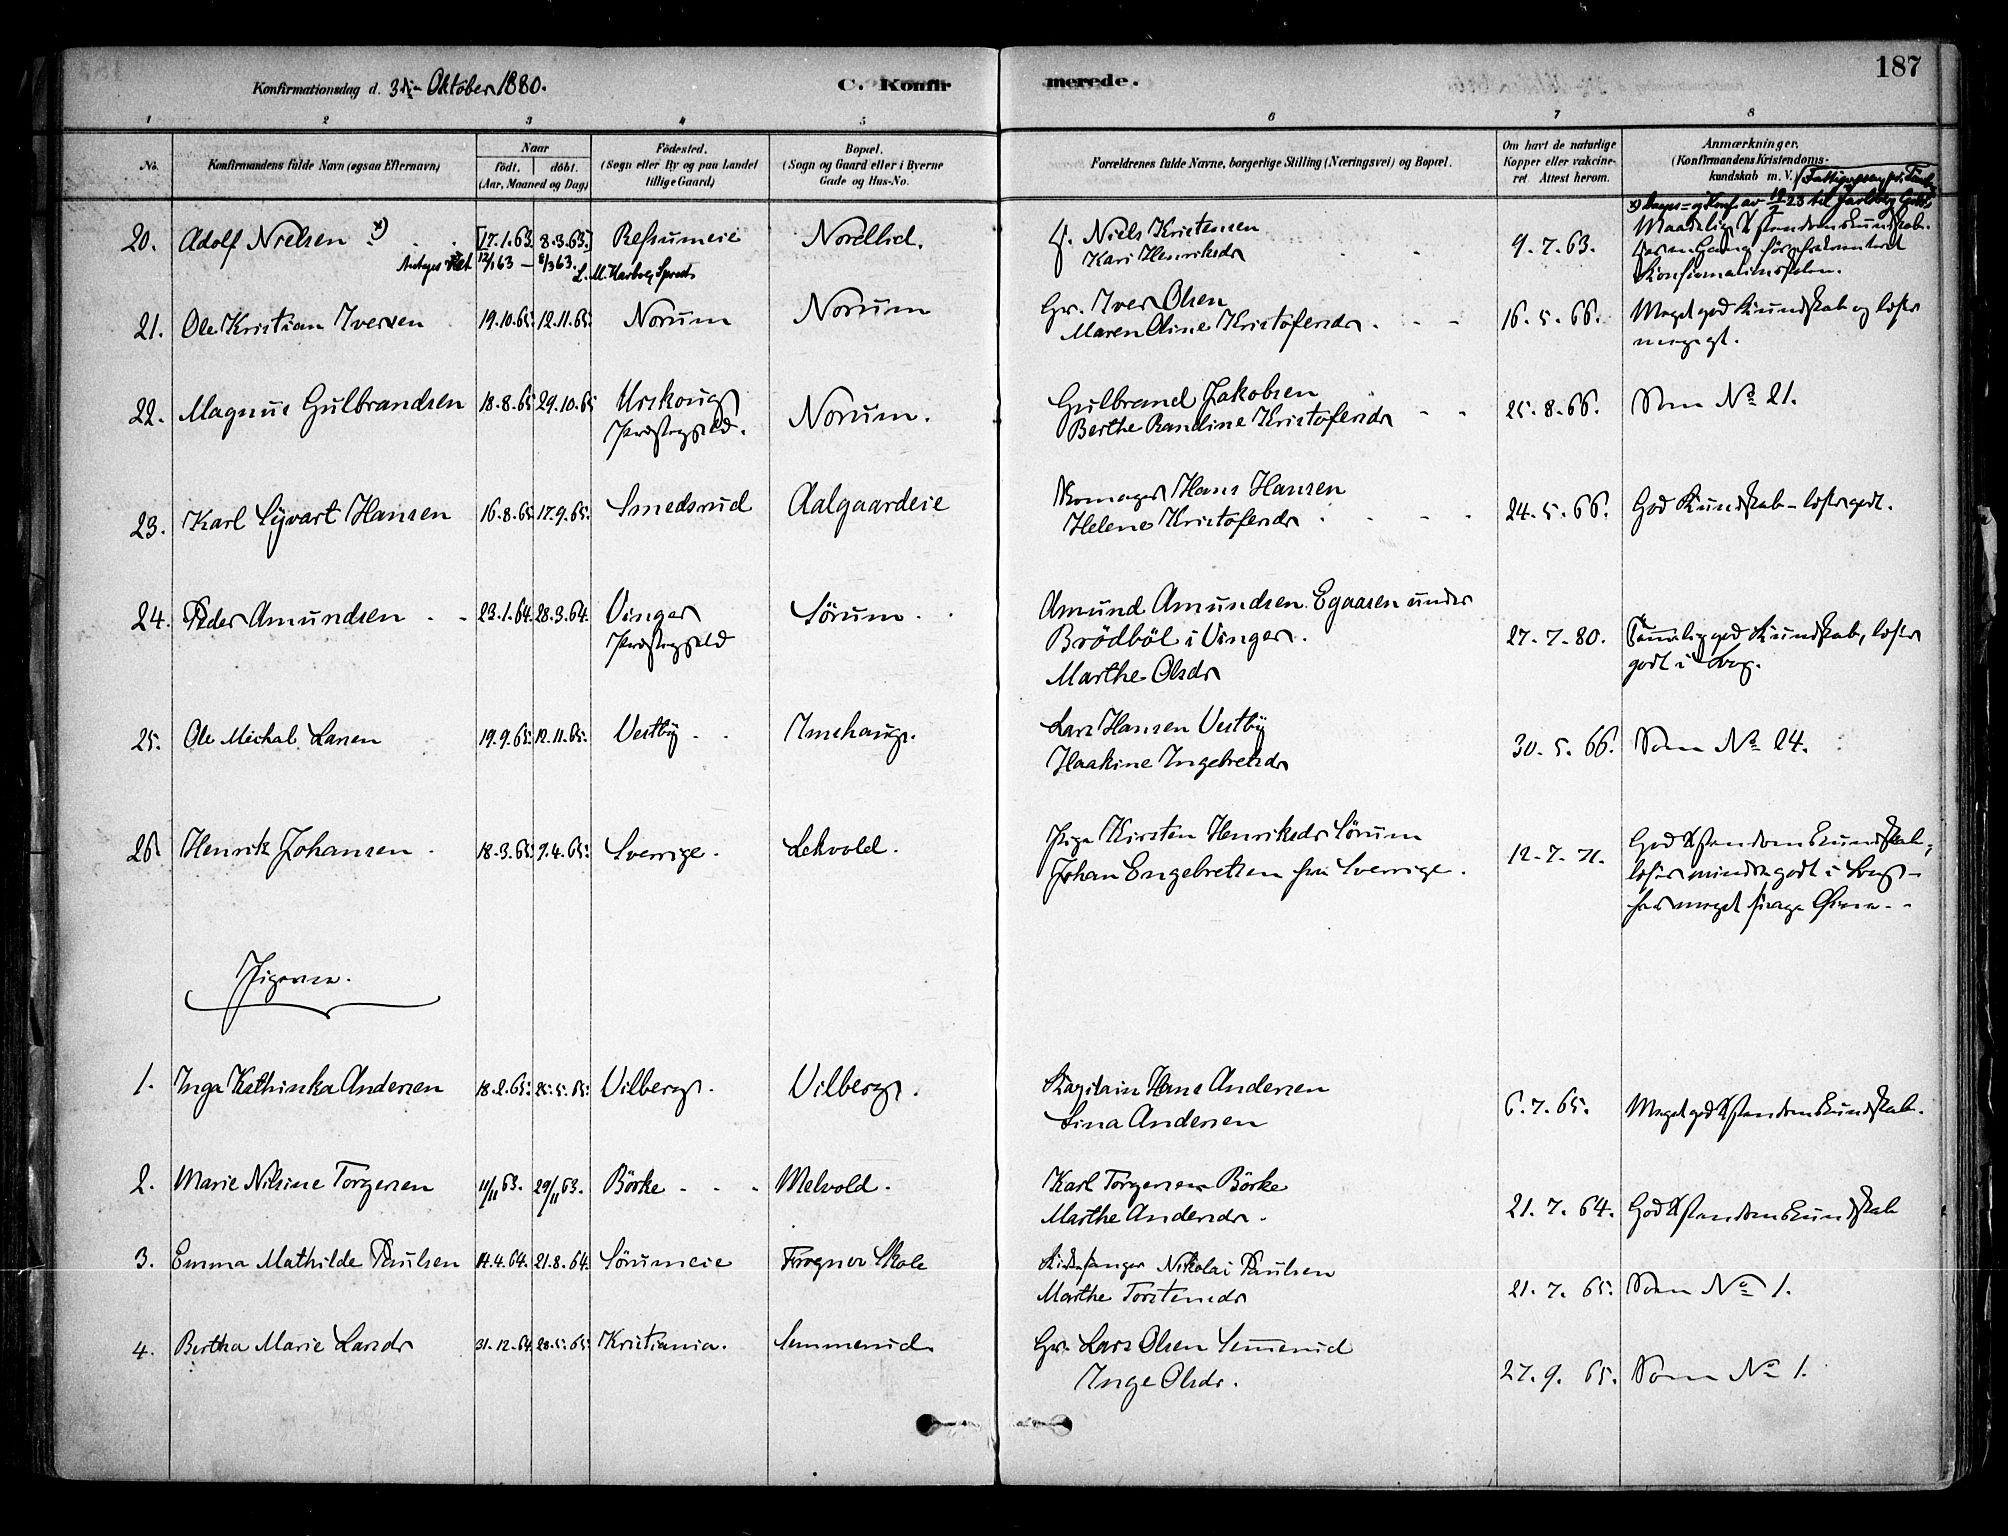 187
Konfirmationsdag d. 3die Oktober 1880.
C. Konfirmerede.
1 2 3 4 5 6 7 8
No.
Konfirmandens fulde Navn (ogsaa Efternavn)
Naar
født. døbt.
(Aar, Maaned og Dag)
Fødested.
(Sogn eller By og paa Landet
tillige Gaard)
Bopæl.
(Sogn og Gaard eller i Byerne
Gade og Hus-No.
Forældrenes fulde Navne, borgerlige Stilling (Næringsvei) og Bopæl.
Om havt de naturlige
Kopper eller vakcineret
Attest herom.
Anmærkninger.
(Konfirmandens Kristendomskundskab
m. V.)
20. Adolf Nielsen x) [17.1.63. 8.3.63.] Refsumeie Nordlid. f. Niels Kristensen 9.7.63. Maadelig Xstendomskundskab.
12/1 63 – 8/3 63. Kari Henriksdr
Konfirmationsskolen.
21. Ole Kristian Iversen 19.10.65. 12.11.65. Norum Norum Gr. Iver Olsen 16.5.66. Meget god Kundskab og læser
Maren Oline Kristofersdr. meget gt.
22. Magnus Gulbrandsen 18.8.65 29.10.65 Urskougs Norum. Gulbrand Jakobsen 25.8.66. Som No 21.
Præstegjeld. Berthe Randine Kristofersdr
23. Karl Syvart Hansen 16.8.65 17.9.65. Smedsrud Aalgaardeie Skomager Hans Hansen 24.5.66. God Kundskab – læser godt.
Helene Kristofersdr
24. Peder Amundsen 23.1.64. 28.3.64. Vinger Sörum. Amund Amundsen Egaasen under 27.7.80. Temmelig god Kundskab, læser
Præstegjeld Brödböl i Vinger. godt i Bog.
Marthe Olsdr
25. Ole Michal Larsen 19.9.65. 12.11.65. Vestby Imehaug. Lars Hansen Vestby 30.5.66. Som No 24.
Haakine Ingebretsdr
26. Henrik Johansen 18.3.65. 9.4.65. Sverrige. Lekvold. Pige Kirsten Henriksdr Sörum 12.7.71. God Xstendomskundskab,
Johan Engebretsen fra Sverrige. læser mindre godt i Bog –
har meget svage Öine.
Pigerne.
1. Inga Kathinka Andersen 18.2.65. 25.5.65. Vilberg. Vilberg. Kaptain Hans Andersen 6.7.65. Meget god Xstendomskundskab.
Lina Andersen
2. Marie Nilsine Torgersen 11/11 63. 29/11 63. Börke Melvold. Karl Torgersen Börke 21.7.64. God Xstendomskundskab
Marthe Andersdr.
3. Emma Mathilde Paulsen 14.4.64. 21.8.64. Sörumeie Frogner Skole Kirkesanger Nikolai Paulsen 21.7.65. Som No 1.
Marthe Torstensdr
4. Bertha Marie Larsdr 31.12.64. 28.5.65. Kristiania. Semmerud. Gr. Lars Olsen Semmerud 27.9.65. Som No 1.
Inge Olsdr.